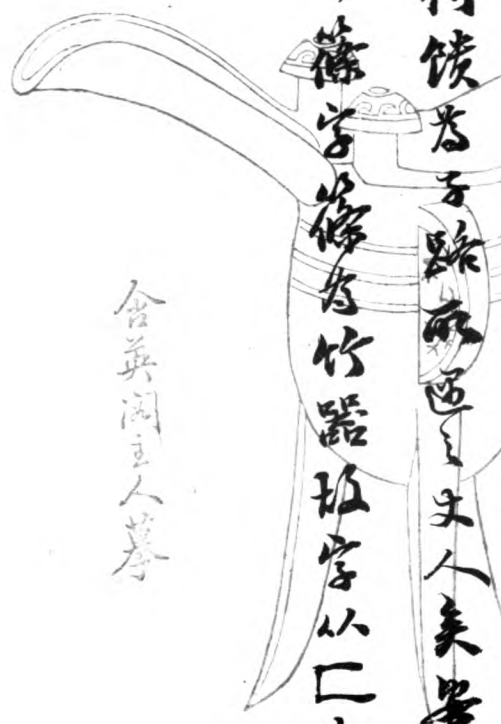 饋為子路所遇之丈人矣
篠字篠為竹器故字从匚
含英閣主人摹